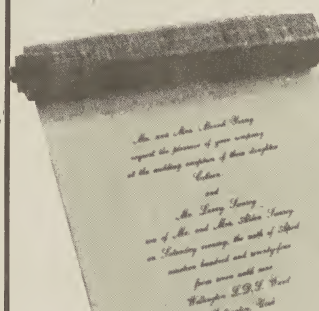 Mr. and Mrs.
request the pleasure of your company
at the wedding reception of their daughter
Colleen
and
Mr. Larry
son of Mr. and Mrs. Alden
on Saturday evening, the sixth of April
nineteen hundred and seventy-four
from seven until nine
Wellington L.D.S. Ward
Wellington, Utah